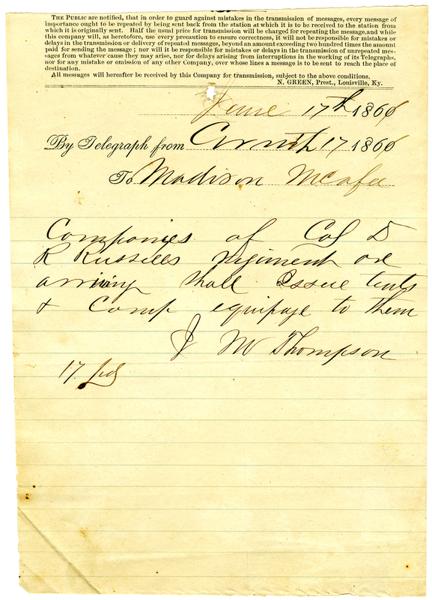 THE PUBLIC are notified, that in order to guard against mistakes in the transmission of messages, every message of
importance ought to be repeated by being sent back from the station at which it is to be received to the station from
which it is originally sent. Half the usual price for transmission will be charged for repeating the message, and while
this company will, as heretofore, use every precaution to ensure correctness, it will not be responsible for mistakes or
delays in the transmission or delivery of repeated messages, beyond an amount exceeding two hundred times the amount
paid for sending the message; nor will it be responsible for mistakes or delays in the transmission of unrepeated mes-
sages from whatever cause they may arise, nor for delays arising from interruptions in the working of its Telegraphs,
nor for any mistake or omission of any other Company, over whose lines a message is to be sent to reach the place of
destination.
All messages will hereafter be received by this Company for transmission, subject to the above conditions.
N. GREEN, Prest., Louisville, Ky.
June 17th 1866
By Telegraph from Corinth 17 1866
To Madison McAfee
Companies of Col D
R Russells regiment are
arriving shall issue tents
& Camp equipage to them
J W Thompson
17 pd